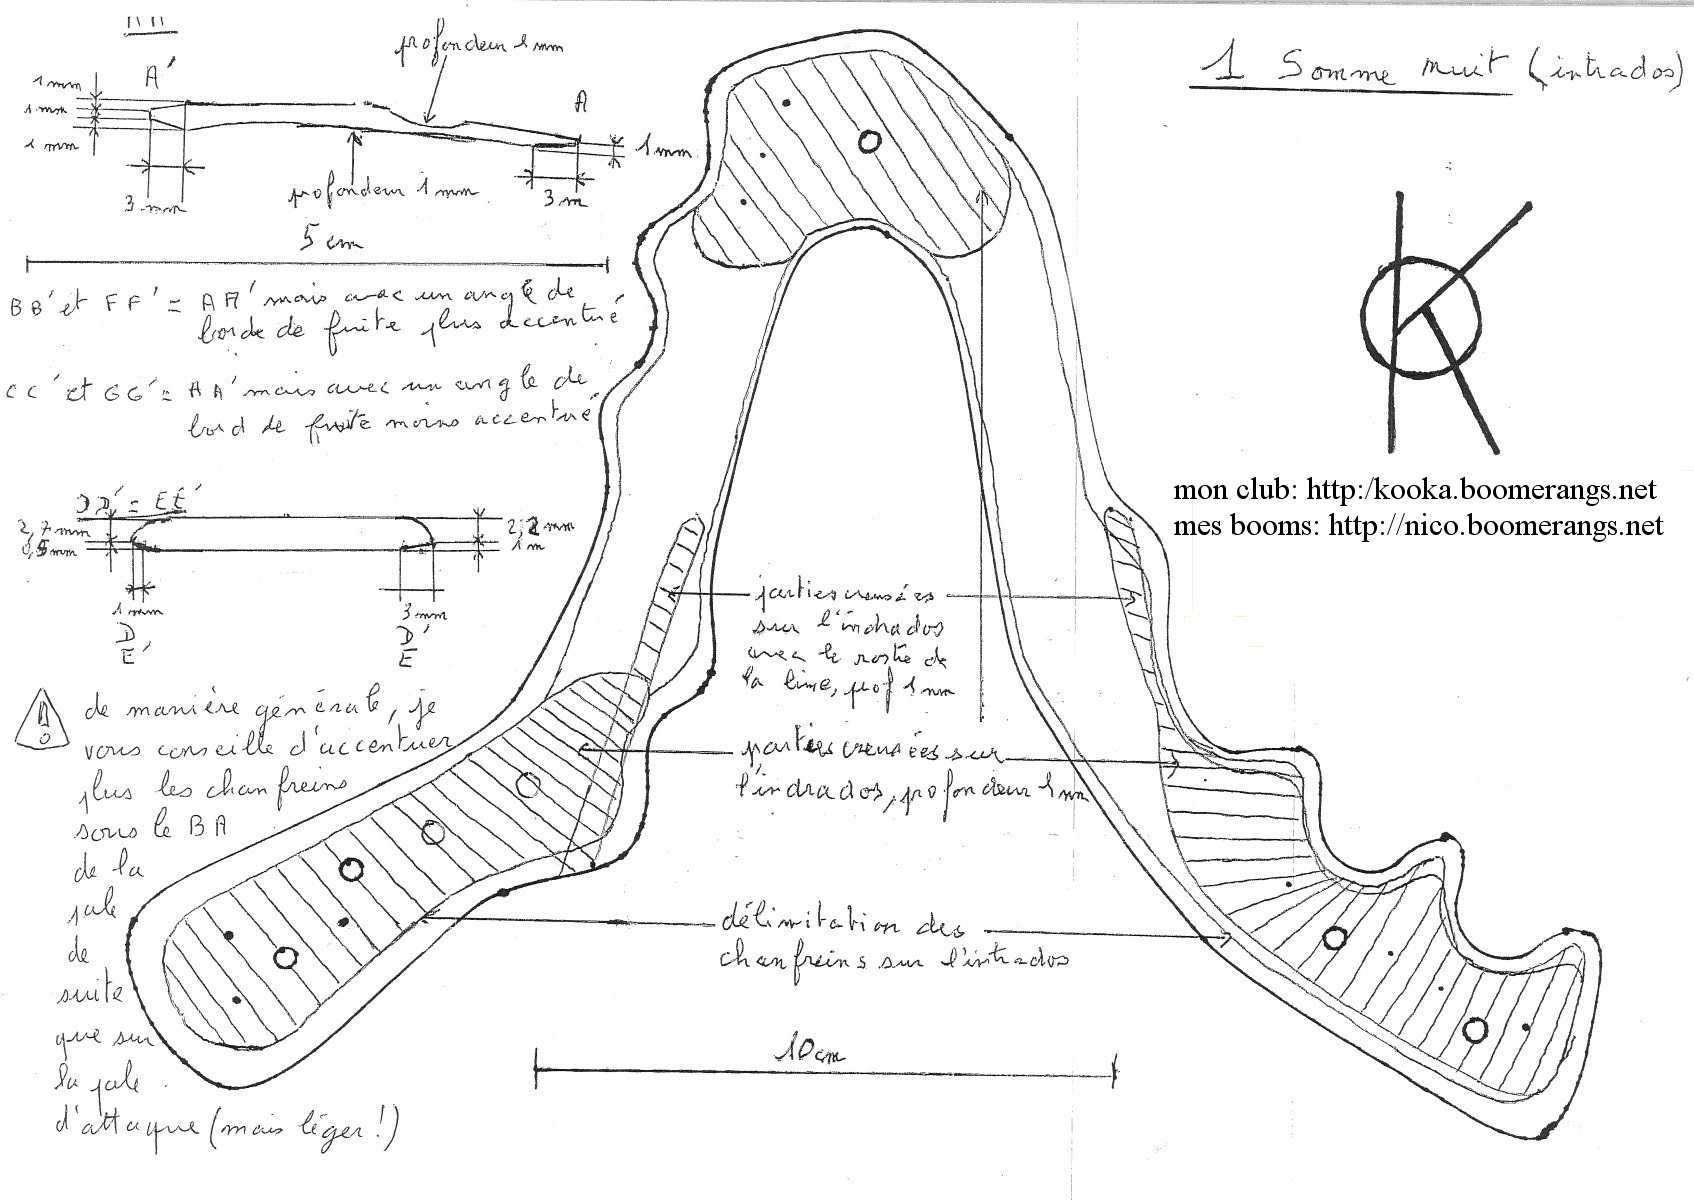 1 Somme nuit (intrados)
profondeur 1 mm
A'
1 mm
1 mm
1 mm
3 mm
A
1 mm
3 m
profondeur 1 mm
5 cm
BB' et FF' = AA' mais avec un angle de
borde de fuite plus accentué
CC' et GG' = AA' mais avec un angle de
bord de fuite moins accentué
DD' = EE'
2,7 mm
0,5 mm
2,2 mm
1 m
1 mm
3 mm
D
E'
D'
E
de manière générale, je
vous conseille d'accentuer
plus les chanfreins
sous le BA
de la
pale
de
suite
que sur
la pale
d'attaque (mais léger !)
parties creusées
sur l'indrados
avec le reste de
la lime, prof 1 mm
parties creusées sur
l'indrados, profondeur 1 mm
délimitation des
chanfreins sur l'intrados
10 cm
mon club: http:/kooka.boomerangs.net
mes booms: http://nico.boomerangs.net